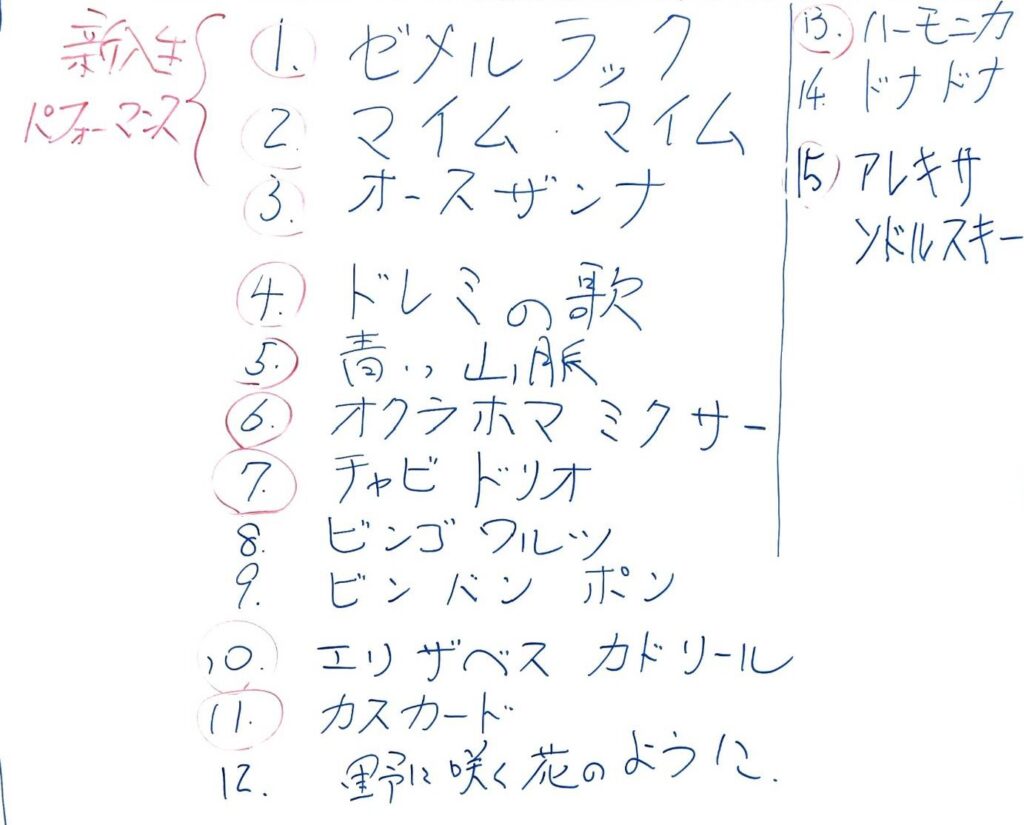 新入生
パフォーマンス
1. ゼメル ラック
2. マイム・マイム
3. オースザンナ
4. ドレミの歌
5. 青い山脈
6. オクラホマ ミクサー
7. チャビ ドリオ
8. ビンゴ ワルツ
9. ビン バン ポン
10. エリザベス カドリール
11. カスカード
12. 野に咲く花のように.
13. ハーモニカ
14. ドナ ドナ
15 アレキサ
ンドルスキー